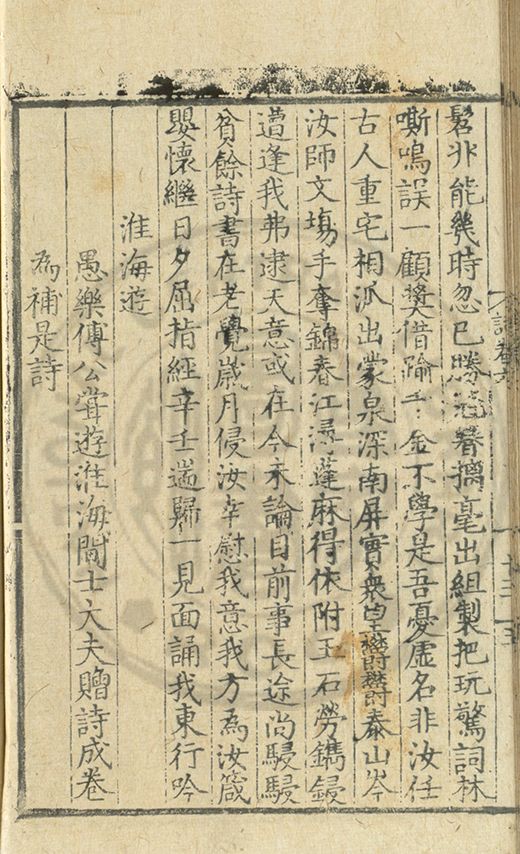 髫丱能幾時忽已勝冠簪摛毫出組製把玩驚詞林
嘶鳴誤一顧奬借踰千金不學是吾憂虛名非汝任
古人重宅相派出蒙泉深南屏實衆望欝欝泰山岑
汝師文塲手奪錦春江潯蓬麻得依附玉石勞鐫鋟
遭逢我弗逮天意或在今未論目前事長途尚駸駸
貧餘詩書在老覺嵗月侵汝幸慰我意我方為汝箴
嬰懷繼日夕屈指經辛壬遄歸一見面誦我東行吟
淮海遊
愚樂傅公嘗遊淮海間士大夫贈詩成卷
為補是詩